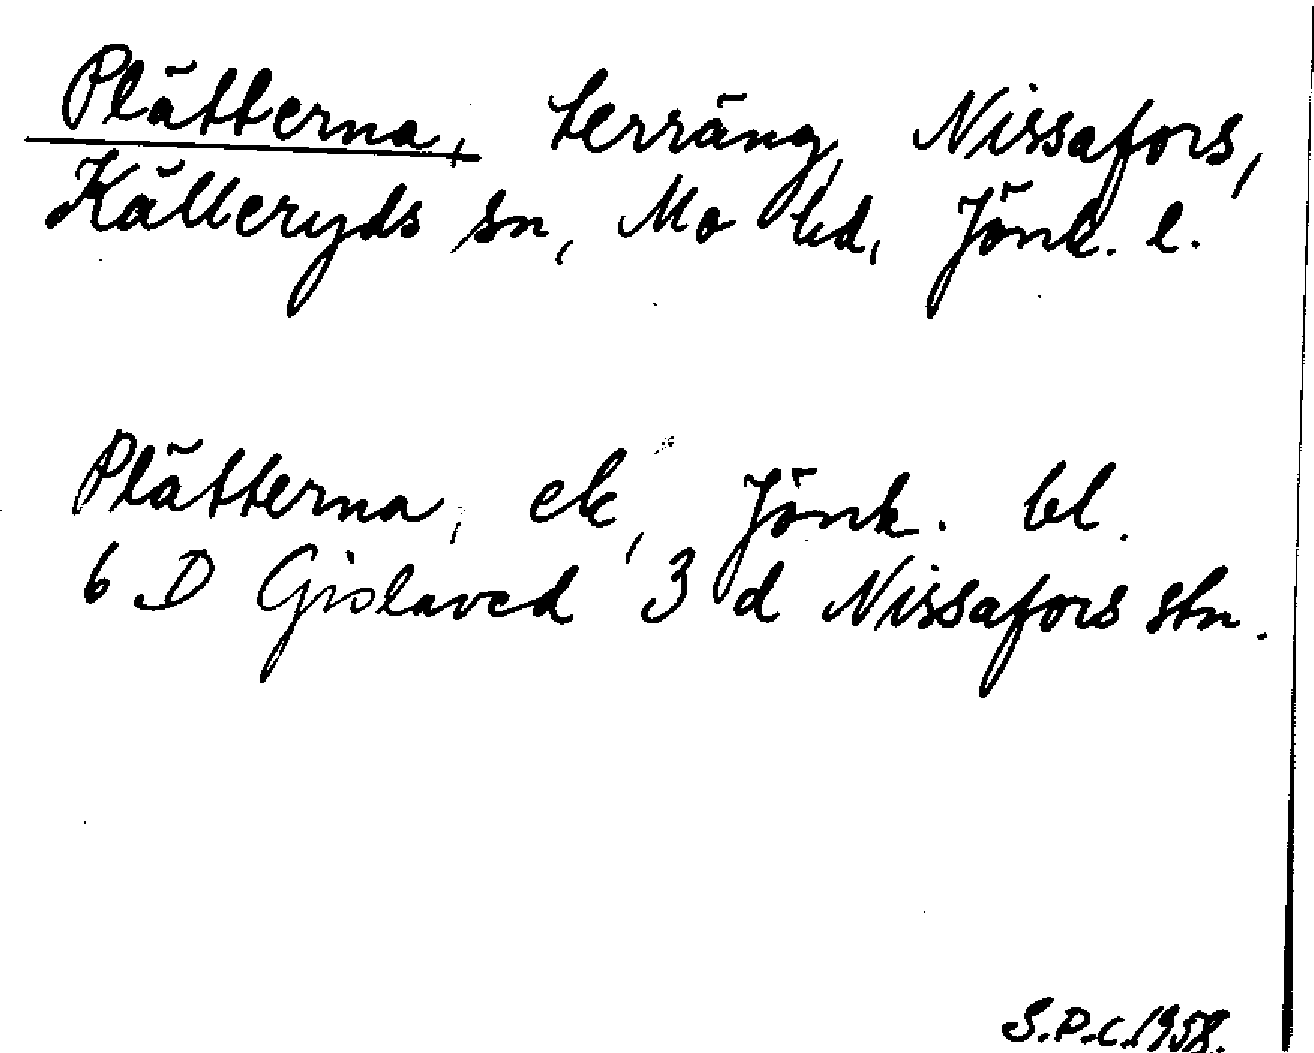 Plätterna, terräng, Nissafors,
Källeryds sn, Mo hd, Jönk. l.
Plätterna, ek, Jönk. bl.
6 D Gislaved 3 d Nissafors stn.
S.P.C. 1958.